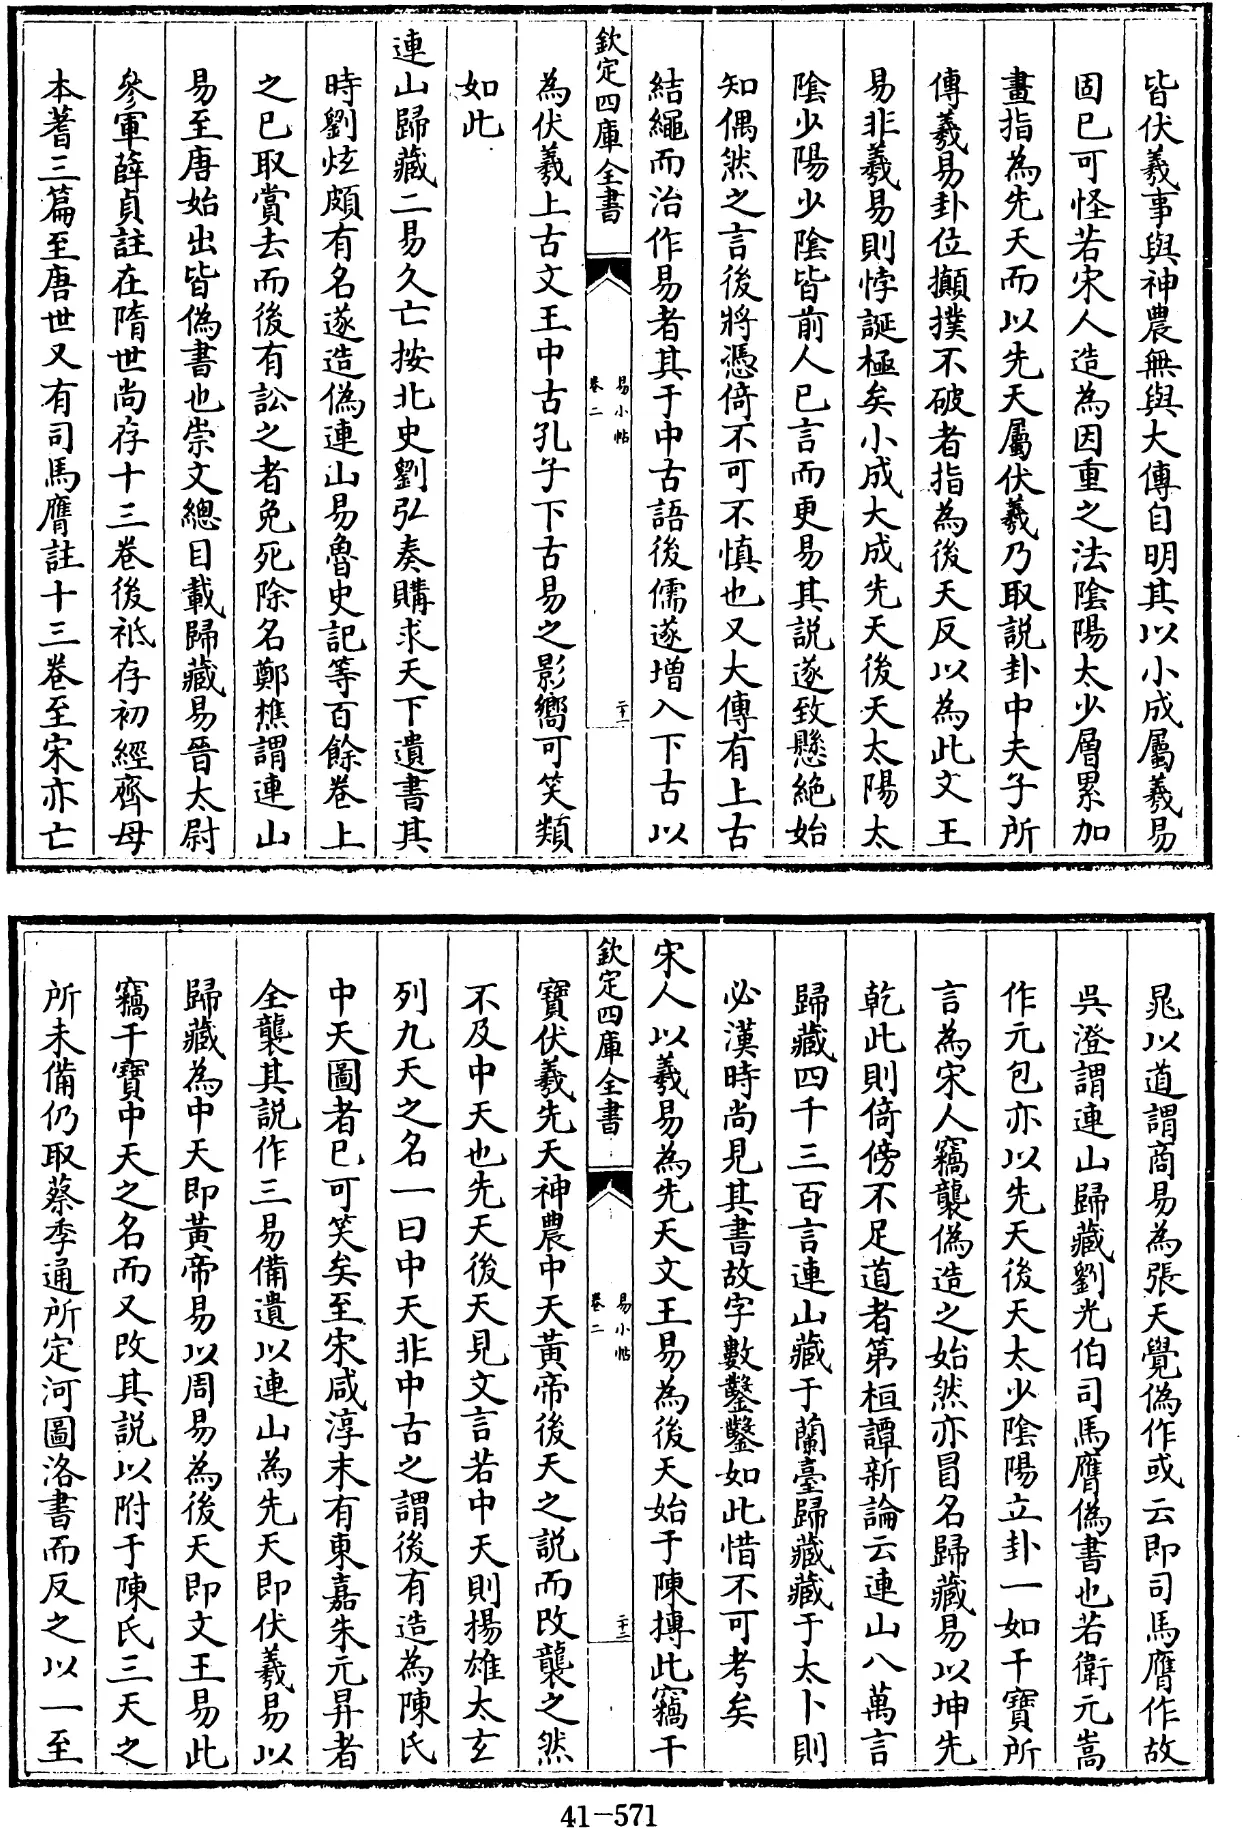 皆伏羲事與神農無與大傳自明其以小成屬羲易
固已可怪若宋人造為因重之法陰陽太少層累加
畫指為先天而以先天屬伏羲乃取説卦中夫子所
傳羲易卦位攧撲不破者指為後天反以為此文王
易非羲易則悖誕極矣小成大成先天後天太陽太
陰少陽少陰皆前人已言而更易其説遂致懸絶始
知偶然之言後將憑倚不可不慎也又大傳有上古
結繩而治作易者其于中古語後儒遂增入下古以
欽定四庫全書
易小帖
卷二
二十一
為伏羲上古文王中古孔子下古易之影嚮可笑類
如此
連山歸藏二易久亡按北史劉弘奏購求天下遺書其
時劉炫頗有名遂造偽連山易魯史記等百餘卷上
之已取賞去而後有訟之者免死除名鄭樵謂連山
易至唐始出皆偽書也崇文總目載歸藏易晉太尉
參軍薛貞註在隋世尚存十三卷後祗存初經齊母
本蓍三篇至唐世又有司馬膺註十三卷至宋亦亡
晁以道謂商易為張天覺偽作或云即司馬膺作故
吳澄謂連山歸藏劉光伯司馬膺偽書也若衛元嵩
作元包亦以先天後天太少陰陽立卦一如干寶所
言為宋人竊襲偽造之始然亦冒名歸藏易以坤先
乾此則倚傍不足道者第桓譚新論云連山八萬言
歸藏四千三百言連山藏于蘭臺歸藏藏于太卜則
必漢時尚見其書故字數鑿鑿如此惜不可考矣
宋人以羲易為先天文王易為後天始于陳摶此竊干
欽定四庫全書
易小帖
卷二
二十二
寶伏羲先天神農中天黃帝後天之説而改襲之然
不及中天也先天後天見文言若中天則揚雄太玄
列九天之名一曰中天非中古之謂後有造為陳氏
中天圖者已可笑矣至宋咸淳末有東嘉朱元昇者
全襲其説作三易備遺以連山為先天即伏羲易以
歸藏為中天即黃帝易以周易為後天即文王易此
竊干寶中天之名而又改其説以附于陳氏三天之
所未備仍取蔡季通所定河圖洛書而反之以一至
41-571